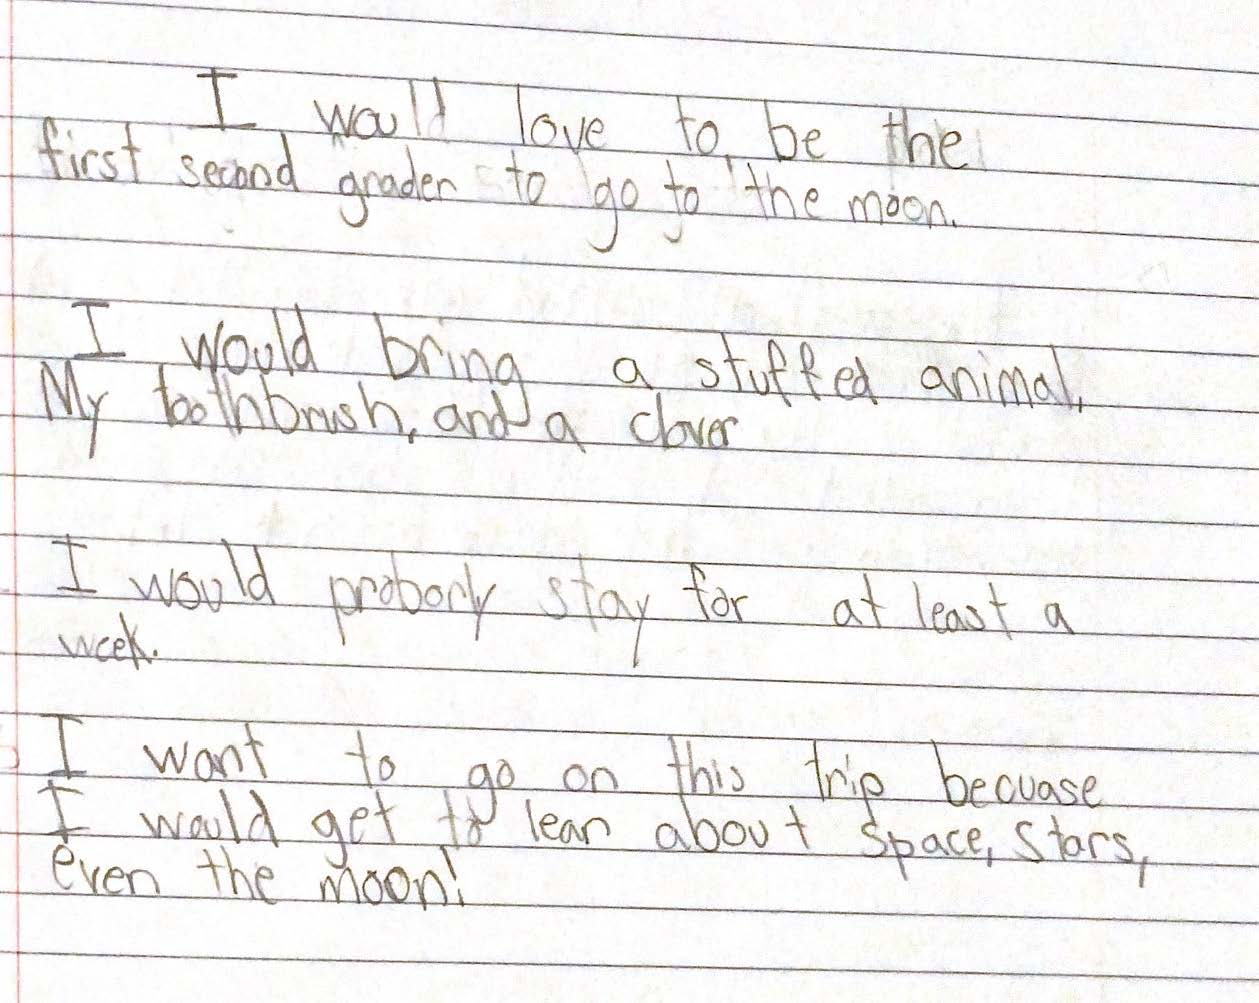 I would love to be the
first second grader to go to the moon.
I would bring a stuffed animal,
My toothbrush, and a clover
I would proborly stay for at least a
week.
I want to go on this trip becuase
I would get to lean about space, stars,
even the moon!